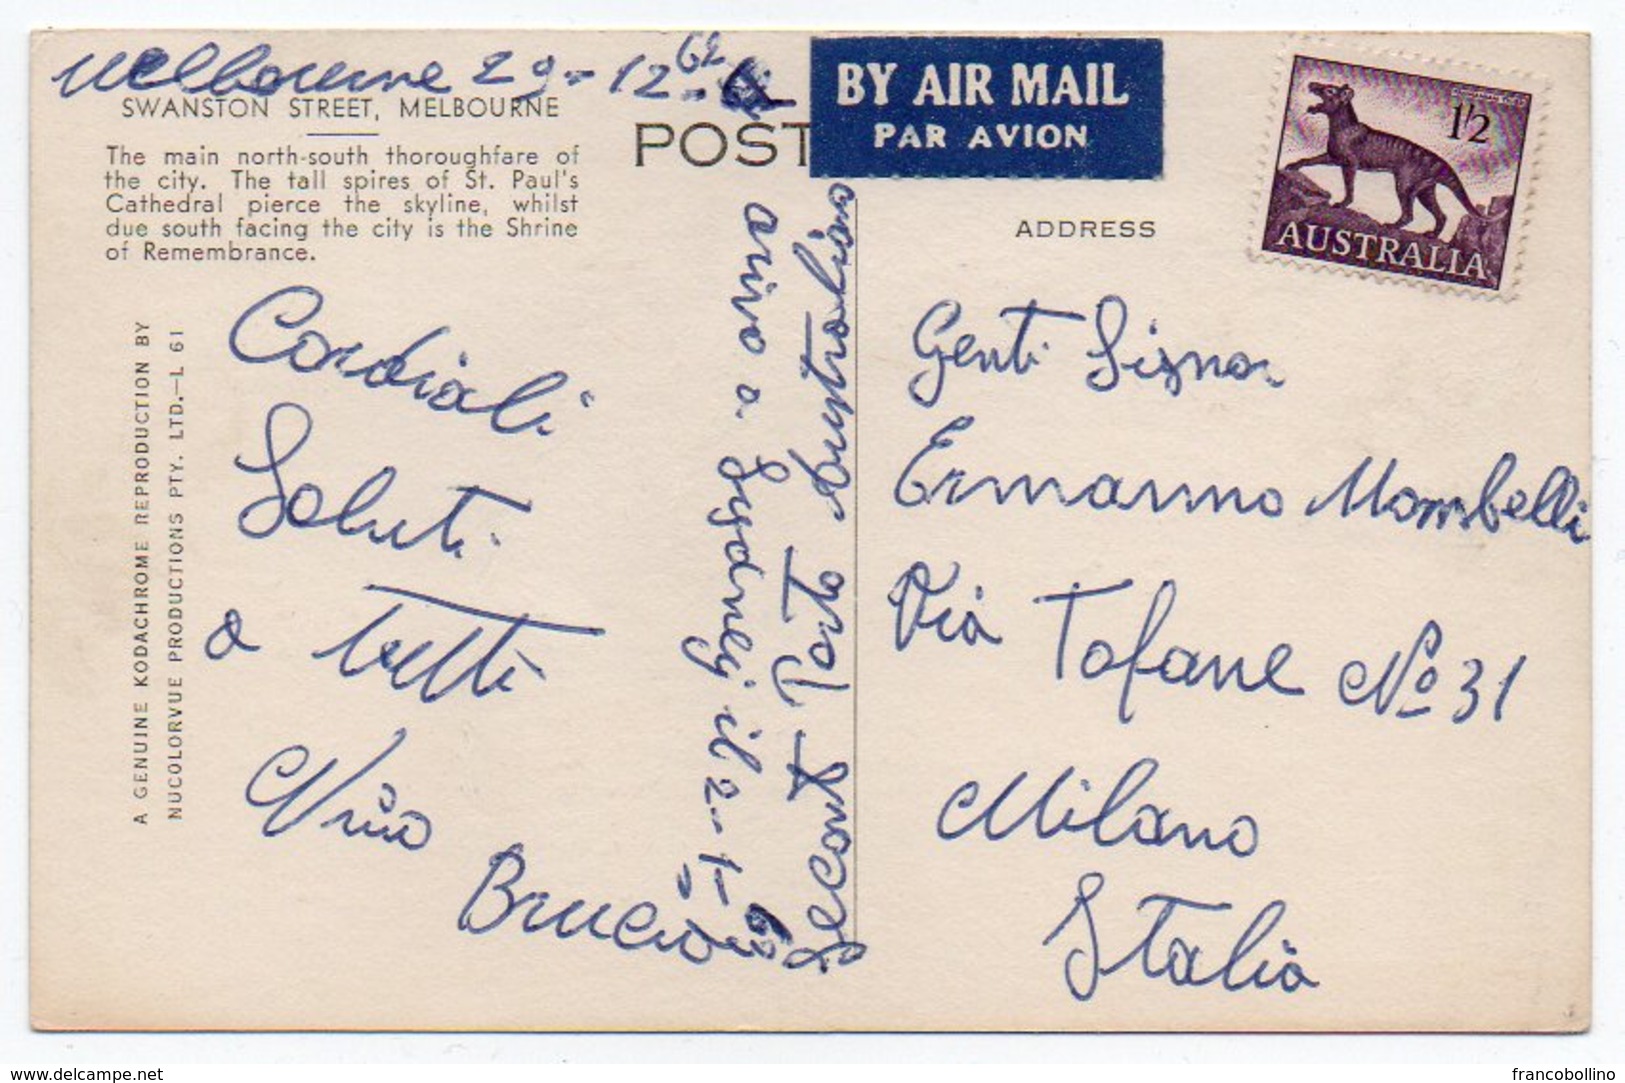 Melbourne 29-12-62
SWANSTON STREET, MELBOURNE
The main north-south thoroughfare of
the city. The tall spires of St. Paul's
Cathedral pierce the skyline, whilst
due south facing the city is the Shrine
of Remembrance.
A GENUINE KODACHROME REPRODUCTION BY
NUCOLORVUE PRODUCTIONS PTY. LTD.—L 61
Cordiali
Saluti
a tutti
Nino
Bruccio
Secont Porto Australiano
arivo a Sydney il 2-1-63
POST
BY AIR MAIL
PAR AVION
ADDRESS
1/2
AUSTRALIA
Genti Signor
Ermanno Mombelli
Via Tofane No 31
Milano
Italia
www.delcampe.net
francobollino